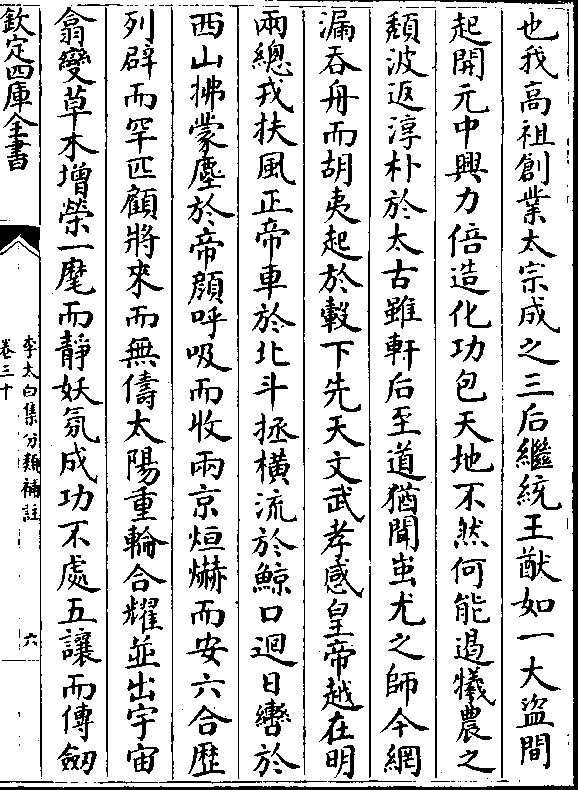 也我高祖創業太宗成之三后繼統王猷如一大盜間
起開元中興力倍造化功包天地不然何能遏犧農之
頽波返淳朴於太古雖軒后至道猶聞蚩尤之師今網
漏吞舟而胡夷起於轂下先天文武孝感皇帝越在明
兩總戎扶風正帝車於北斗拯横流於鯨口迴日轡於
西山拂蒙塵於帝顔呼吸而收兩京烜爀而安六合歴
列辟而罕匹顧將來而無儔太陽重輪合耀並出宇宙
翕變草木增榮一麾而靜妖氛成功不處五讓而傳劒
欽定四庫全書
李太白集分類補註
卷三十
六